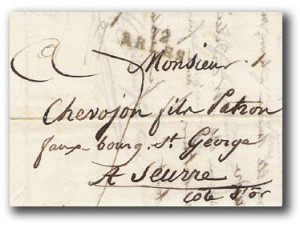 12
ARLES
Monsieur
Chevojon fils Patron
faux-bourg St George
A Seurre
Cote d'or